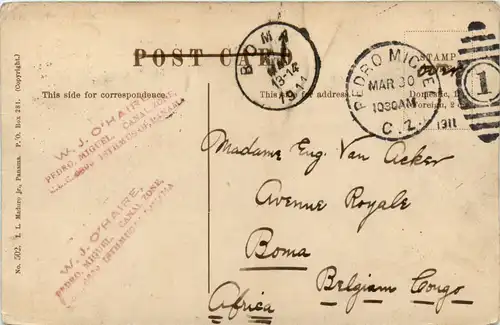 POST CARD
This side for correspondence.
This side for address.
STAMP
Domestic, 1
Foreign, 2 c
BOMA
18-14
1911
PEDRO MIGUEL
MAR 30
1030AM
C.Z.
1911
1
W. J. O'HAIRE,
PEDRO, MIGUEL, CANAL ZONE,
ISTHMUS OF PANAMA
W. J. O'HAIRE,
PEDRO, MIGUEL, CANAL ZONE,
ISTHMUS OF PANAMA
Madame Eug. Van Acker
Avenue Royale
Boma
Belgian Congo
Africa
No. 502. I. L. Maduro jr., Panama. P. O. Box 281. (Copyright.)